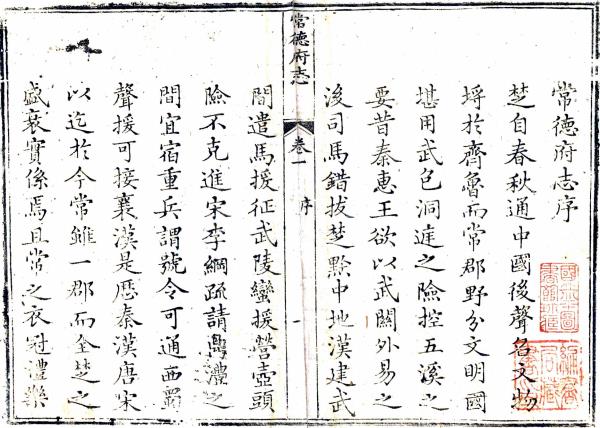 常德府志序
楚自春秋通中國後聲名文物
埒於齊魯而常郡野分文明國
堪用武包洞庭之險控五溪之
要昔秦惠王欲以武關外易之
後司馬錯拔楚黔中地漢建武
常德府志 卷一 序 一
間遣馬援征武陵蠻援營壺頭
險不克進宋李綱疏請鼎澧之
間宜宿重兵謂號令可通西蜀
聲援可接襄漢是歷秦漢唐宋
以迄於今常雖一郡而全楚之
盛衰實係焉且常之衣冠禮樂